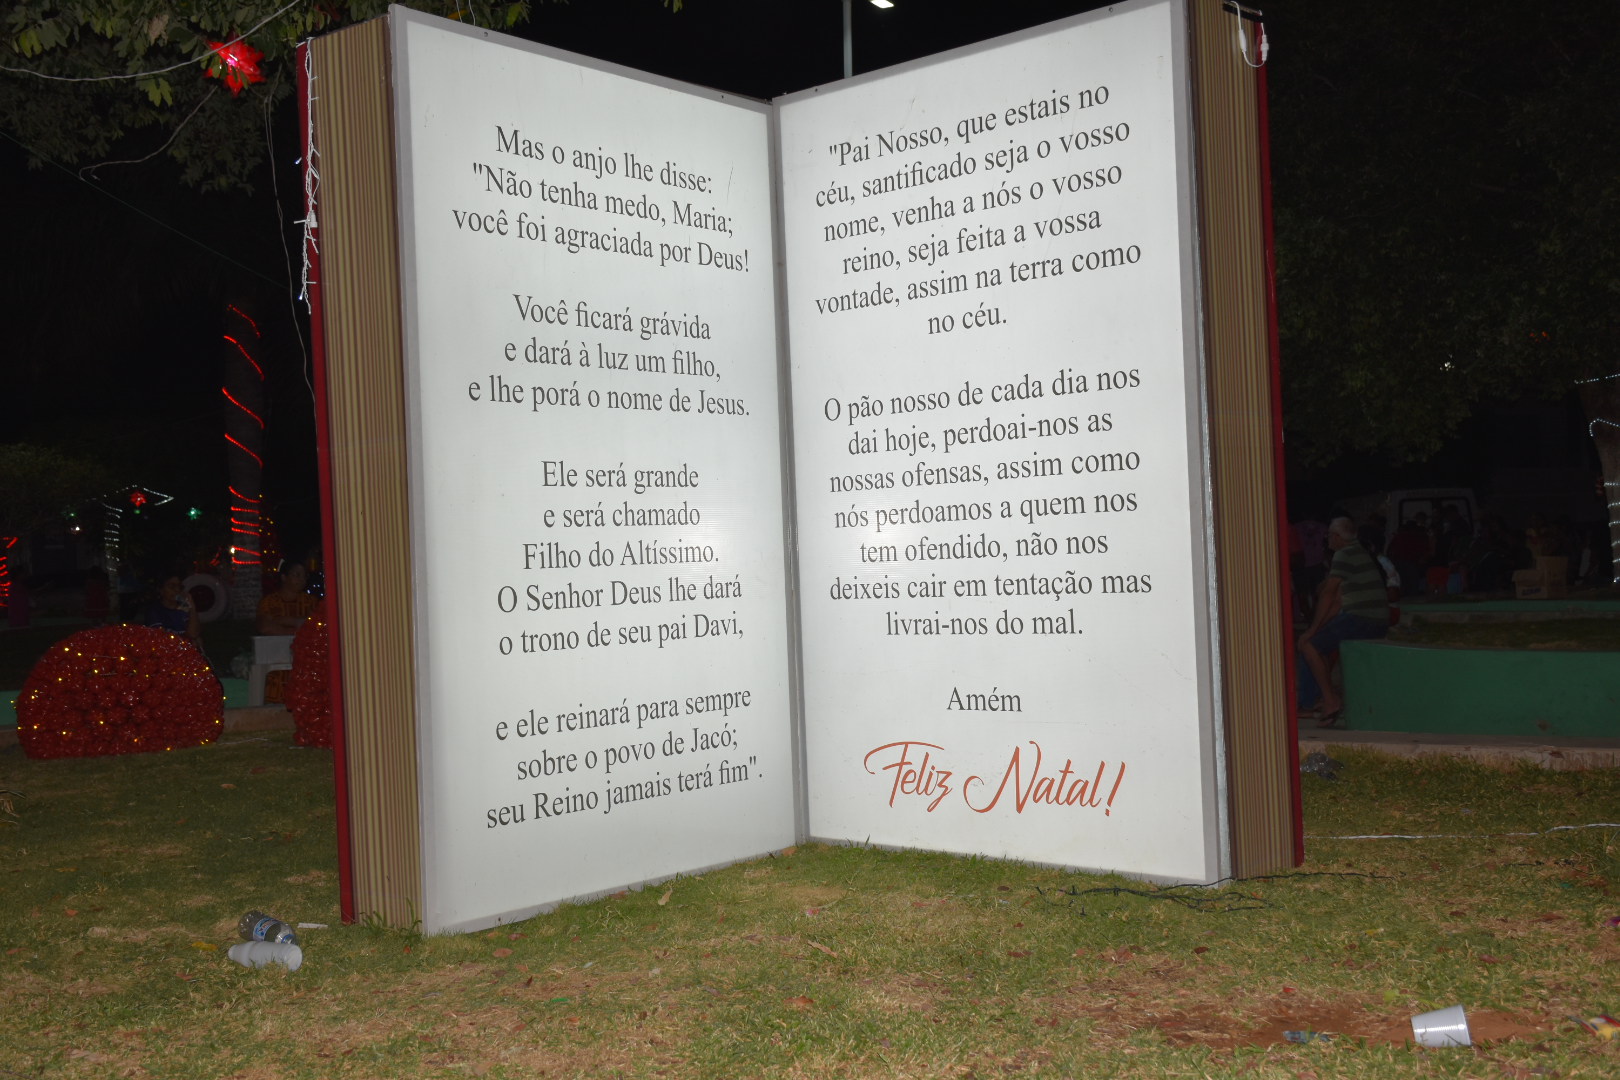 Mas o anjo lhe disse:
"Não tenha medo, Maria;
você foi agraciada por Deus!
Você ficará grávida
e dará à luz um filho,
e lhe porá o nome de Jesus.
Ele será grande
e será chamado
Filho do Altíssimo.
O Senhor Deus lhe dará
o trono de seu pai Davi,
e ele reinará para sempre
sobre o povo de Jacó;
seu Reino jamais terá fim".
"Pai Nosso, que estais no
céu, santificado seja o vosso
nome, venha a nós o vosso
reino, seja feita a vossa
vontade, assim na terra como
no céu.
O pão nosso de cada dia nos
dai hoje, perdoai-nos as
nossas ofensas, assim como
nós perdoamos a quem nos
tem ofendido, não nos
deixeis cair em tentação mas
livrai-nos do mal.
Amém
Feliz Natal!